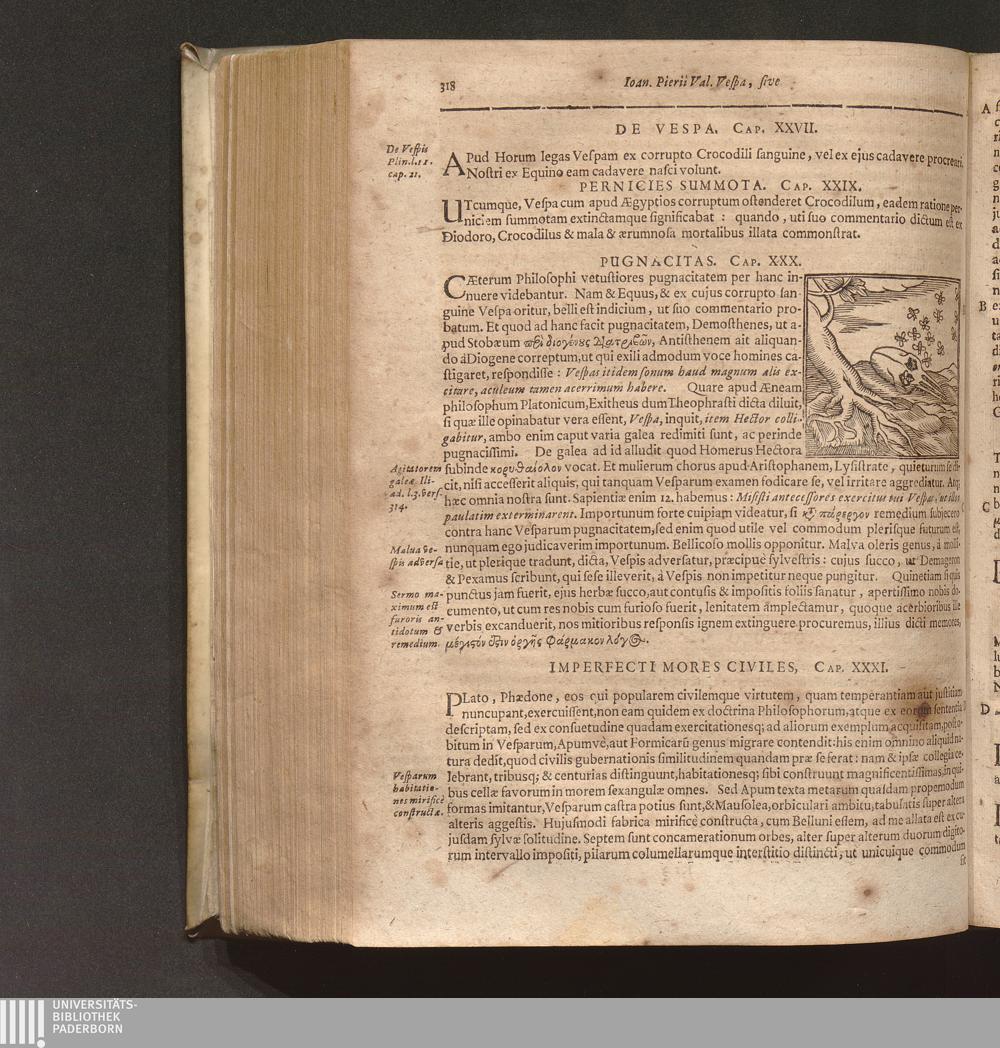 318
Ioan. Pierii Val. Veſpa, ſive
DE VESPA. CAP. XXVII.
De Veſpis
Plin.l.11.
cap. 21.
APud Horum legas Veſpam ex corrupto Crocodili ſanguine, vel ex ejus cadavere procreari.
Noſtri ex Equino eam cadavere naſci volunt.
PERNICIES SUMMOTA. CAP. XXIX.
UTcumque, Veſpa cum apud Ægyptios corruptum oſtenderet Crocodilum, eadem ratione per-
niciem ſummotam extinctamque ſignificabat : quando, uti ſuo commentario dictum eſt ex
Diodoro, Crocodilus & mala & ærumnoſa mortalibus illata commonſtrat.
PUGNACITAS. CAP. XXX.
CÆterum Philoſophi vetuſtiores pugnacitatem per hanc in-
nuere videbantur. Nam & Equus, & ex cujus corrupto ſan-
guine Veſpa oritur, belli eſt indicium, ut ſuo commentario pro-
batum. Et quod ad hanc facit pugnacitatem, Demoſthenes, ut a-
pud Stobæum περὶ διογένους διατριβῶν, Antiſthenem ait aliquan-
do à Diogene correptum, ut qui exili admodum voce homines ca-
ſtigaret, reſpondiſſe : Veſpas itidem ſonum haud magnum alis ex-
citare, aculeum tamen acerrimum habere. Quare apud Æneam
philoſophum Platonicum, Exitheus dum Theophraſti dicta diluit,
ſi quæ ille opinabatur vera eſſent, Veſpa, inquit, item Hector colli-
gabitur, ambo enim caput varia galea redimiti ſunt, ac perinde
pugnaciſſimi. De galea ad id alludit quod Homerus Hectora
Agitatorem
galeæ Ili-
ad. l.3. verſ.
314.
ſubinde κορυθαίολον vocat. Et mulierum chorus apud Ariſtophanem, Lyſiſtrate, quieturum ſe di-
cit, niſi acceſſerit aliquis, qui tanquam Veſparum examen fodicare ſe, vel irritare aggrediatur. Atq;
hæc omnia noſtra ſunt. Sapientiæ enim 12. habemus : Miſiſti anteceſſores exercitus tui Veſpas, ut illos
paulatim exterminarent. Importunum forte cuipiam videatur, ſi κỳ πάρεργον remedium ſubjecero
contra hanc Veſparum pugnacitatem, ſed enim quod utile vel commodum pleriſque futurum eſt,
Malua ve-
ſpis adverſa
nunquam ego judicaverim importunum. Bellicoſo mollis opponitur. Malva oleris genus, à molli-
tie, ut plerique tradunt, dicta, Veſpis adverſatur, præcipuè ſylveſtris : cujus ſucco, ut Demageron
& Pexamus ſcribunt, qui ſeſe illeverit, à Veſpis non impetitur neque pungitur. Quinetiam ſi quis
Sermo ma-
ximum eſt
furoris an-
tidotum &
remedium.
punctus jam fuerit, ejus herbæ ſucco, aut contuſis & impoſitis foliis ſanatur, apertiſſimo nobis do-
cumento, ut cum res nobis cum furioſo fuerit, lenitatem amplectamur, quoque acerbioribus ille
verbis excanduerit, nos mitioribus reſponſis ignem extinguere procuremus, illius dicti memores,
μέγιστόν ἐστιν ὀργῆς φάρμακον λόγος.
IMPERFECTI MORES CIVILES, CAP. XXXI.
PLato, Phædone, eos qui popularem civilemque virtutem, quam temperantiam aut juſtitiam
nuncupant, exercuiſſent, non eam quidem ex doctrina Philoſophorum, atque ex eorum ſententia
deſcriptam, ſed ex conſuetudine quadam exercitationesq; ad aliorum exemplum acquiſitam, poſt o-
bitum in Veſparum, Apumvè, aut Formicarū genus migrare contendit: his enim omnino aliquid na-
tura dedit, quod civilis gubernationis ſimilitudinem quandam præ ſe ferat : nam & ipſæ collegia ce-
Veſparum
habitatio-
nes mirificè
conſtructæ.
lebrant, tribusq; & centurias diſtinguunt, habitationesq; ſibi conſtruunt magnificentiſſimas, in qui-
bus cellæ favorum in morem ſexangulæ omnes. Sed Apum texta metarum quaſdam propemodum
formas imitantur, Veſparum caſtra potius ſunt, & Mauſolea, orbiculari ambitu, tabulatis ſuper altera
alteris aggeſtis. Hujuſmodi fabrica mirificè conſtructa, cum Belluni eſſem, ad me allata eſt ex cu-
juſdam ſylvæ ſolitudine. Septem ſunt concamerationum orbes, alter ſuper alterum duorum digito-
rum intervallo impoſiti, pilarum columellarumque interſtitio diſtincti, ut unicuique commodum
ſit
A
B
C
D
UNIVERSITÄTS-
BIBLIOTHEK
PADERBORN